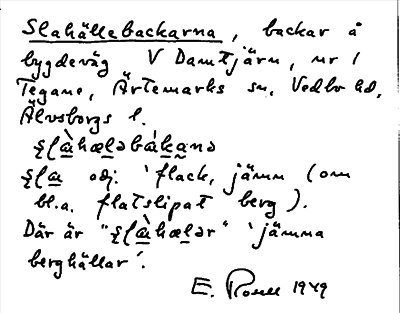 Slahällebackarna, backar å
bygdeväg V Damtjärn, nr 1
Tegane, Ärtemarks sn, Vedbo hd,
Älvsborgs l.
ʂɭàhæləbàkanə
ʂɭa adj. 'flack, jämn (om
bl.a. flatslipat berg).
Där är "ʂɭàhælər" 'jämna
berghällar'.
E. Rosell 1949